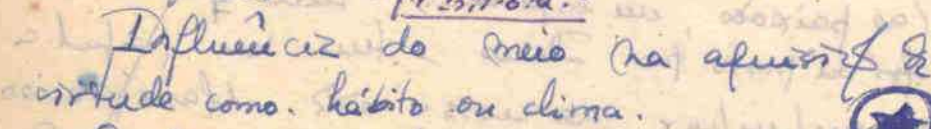 Influência do meio na aquisição da
virtude como. hábito ou clima.